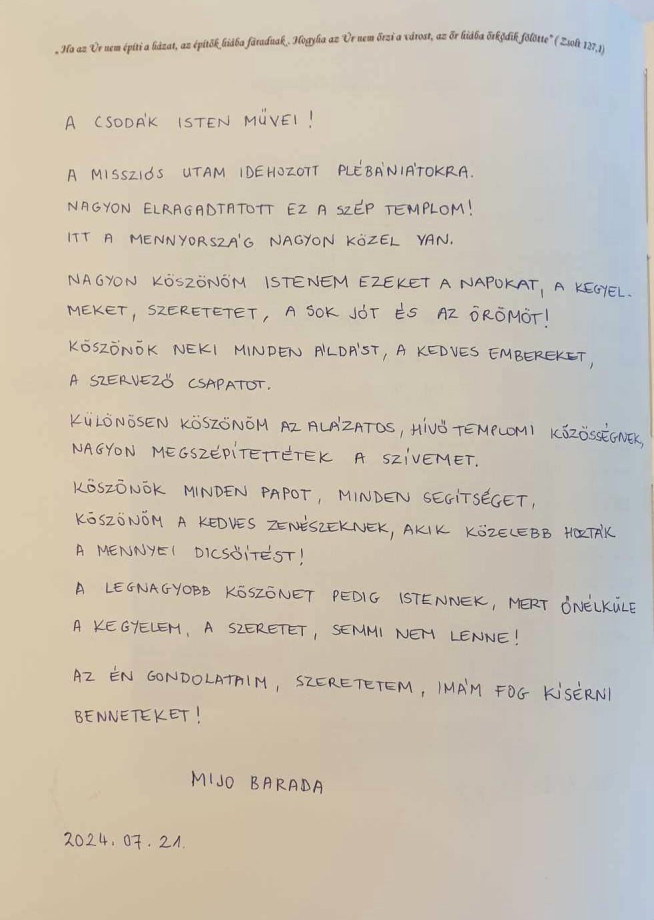 „Ha az Úr nem építi a házat, az építők hiába fáradnak. Hogyha az Úr nem őrzi a várost, az őr hiába őrködik fölötte" (Zsolt 127,1)
A CSODÁK ISTEN MŰVEI!
A MISSZIÓS UTAM IDEHOZOTT PLÉBÁNIÁTOKRA.
NAGYON ELRAGADTATOTT EZ A SZÉP TEMPLOM!
ITT A MENNYORSZÁG NAGYON KÖZEL VAN.
NAGYON KÖSZÖNÖM ISTENEM EZEKET A NAPOKAT, A KEGYEL-
MEKET, SZERETETET, A SOK JÓT ÉS AZ ÖRÖMÖT!
KÖSZÖNÖK NEKI MINDEN ÁLDÁST, A KEDVES EMBEREKET,
A SZERVEZŐ CSAPATOT.
KÜLÖNÖSEN KÖSZÖNÖM AZ ALÁZATOS, HÍVŐ TEMPLOMI KÖZÖSSÉGNEK,
NAGYON MEGSZÉPÍTETTÉTEK A SZÍVEMET.
KÖSZÖNÖK MINDEN PAPOT, MINDEN SEGÍTSÉGET,
KÖSZÖNÖM A KEDVES ZENÉSZEKNEK, AKIK KÖZELEBB HOZTÁK
A MENNYEI DICSŐITÉST!
A LEGNAGYOBB KÖSZÖNET PEDIG ISTENNEK, MERT ŐNÉLKÜLE
A KEGYELEM, A SZERETET, SEMMI NEM LENNE!
AZ ÉN GONDOLATAIM, SZERETETEM, IMÁM FOG KÍSÉRNI
BENNETEKET!
MIJO BARADA
2024.07.21.